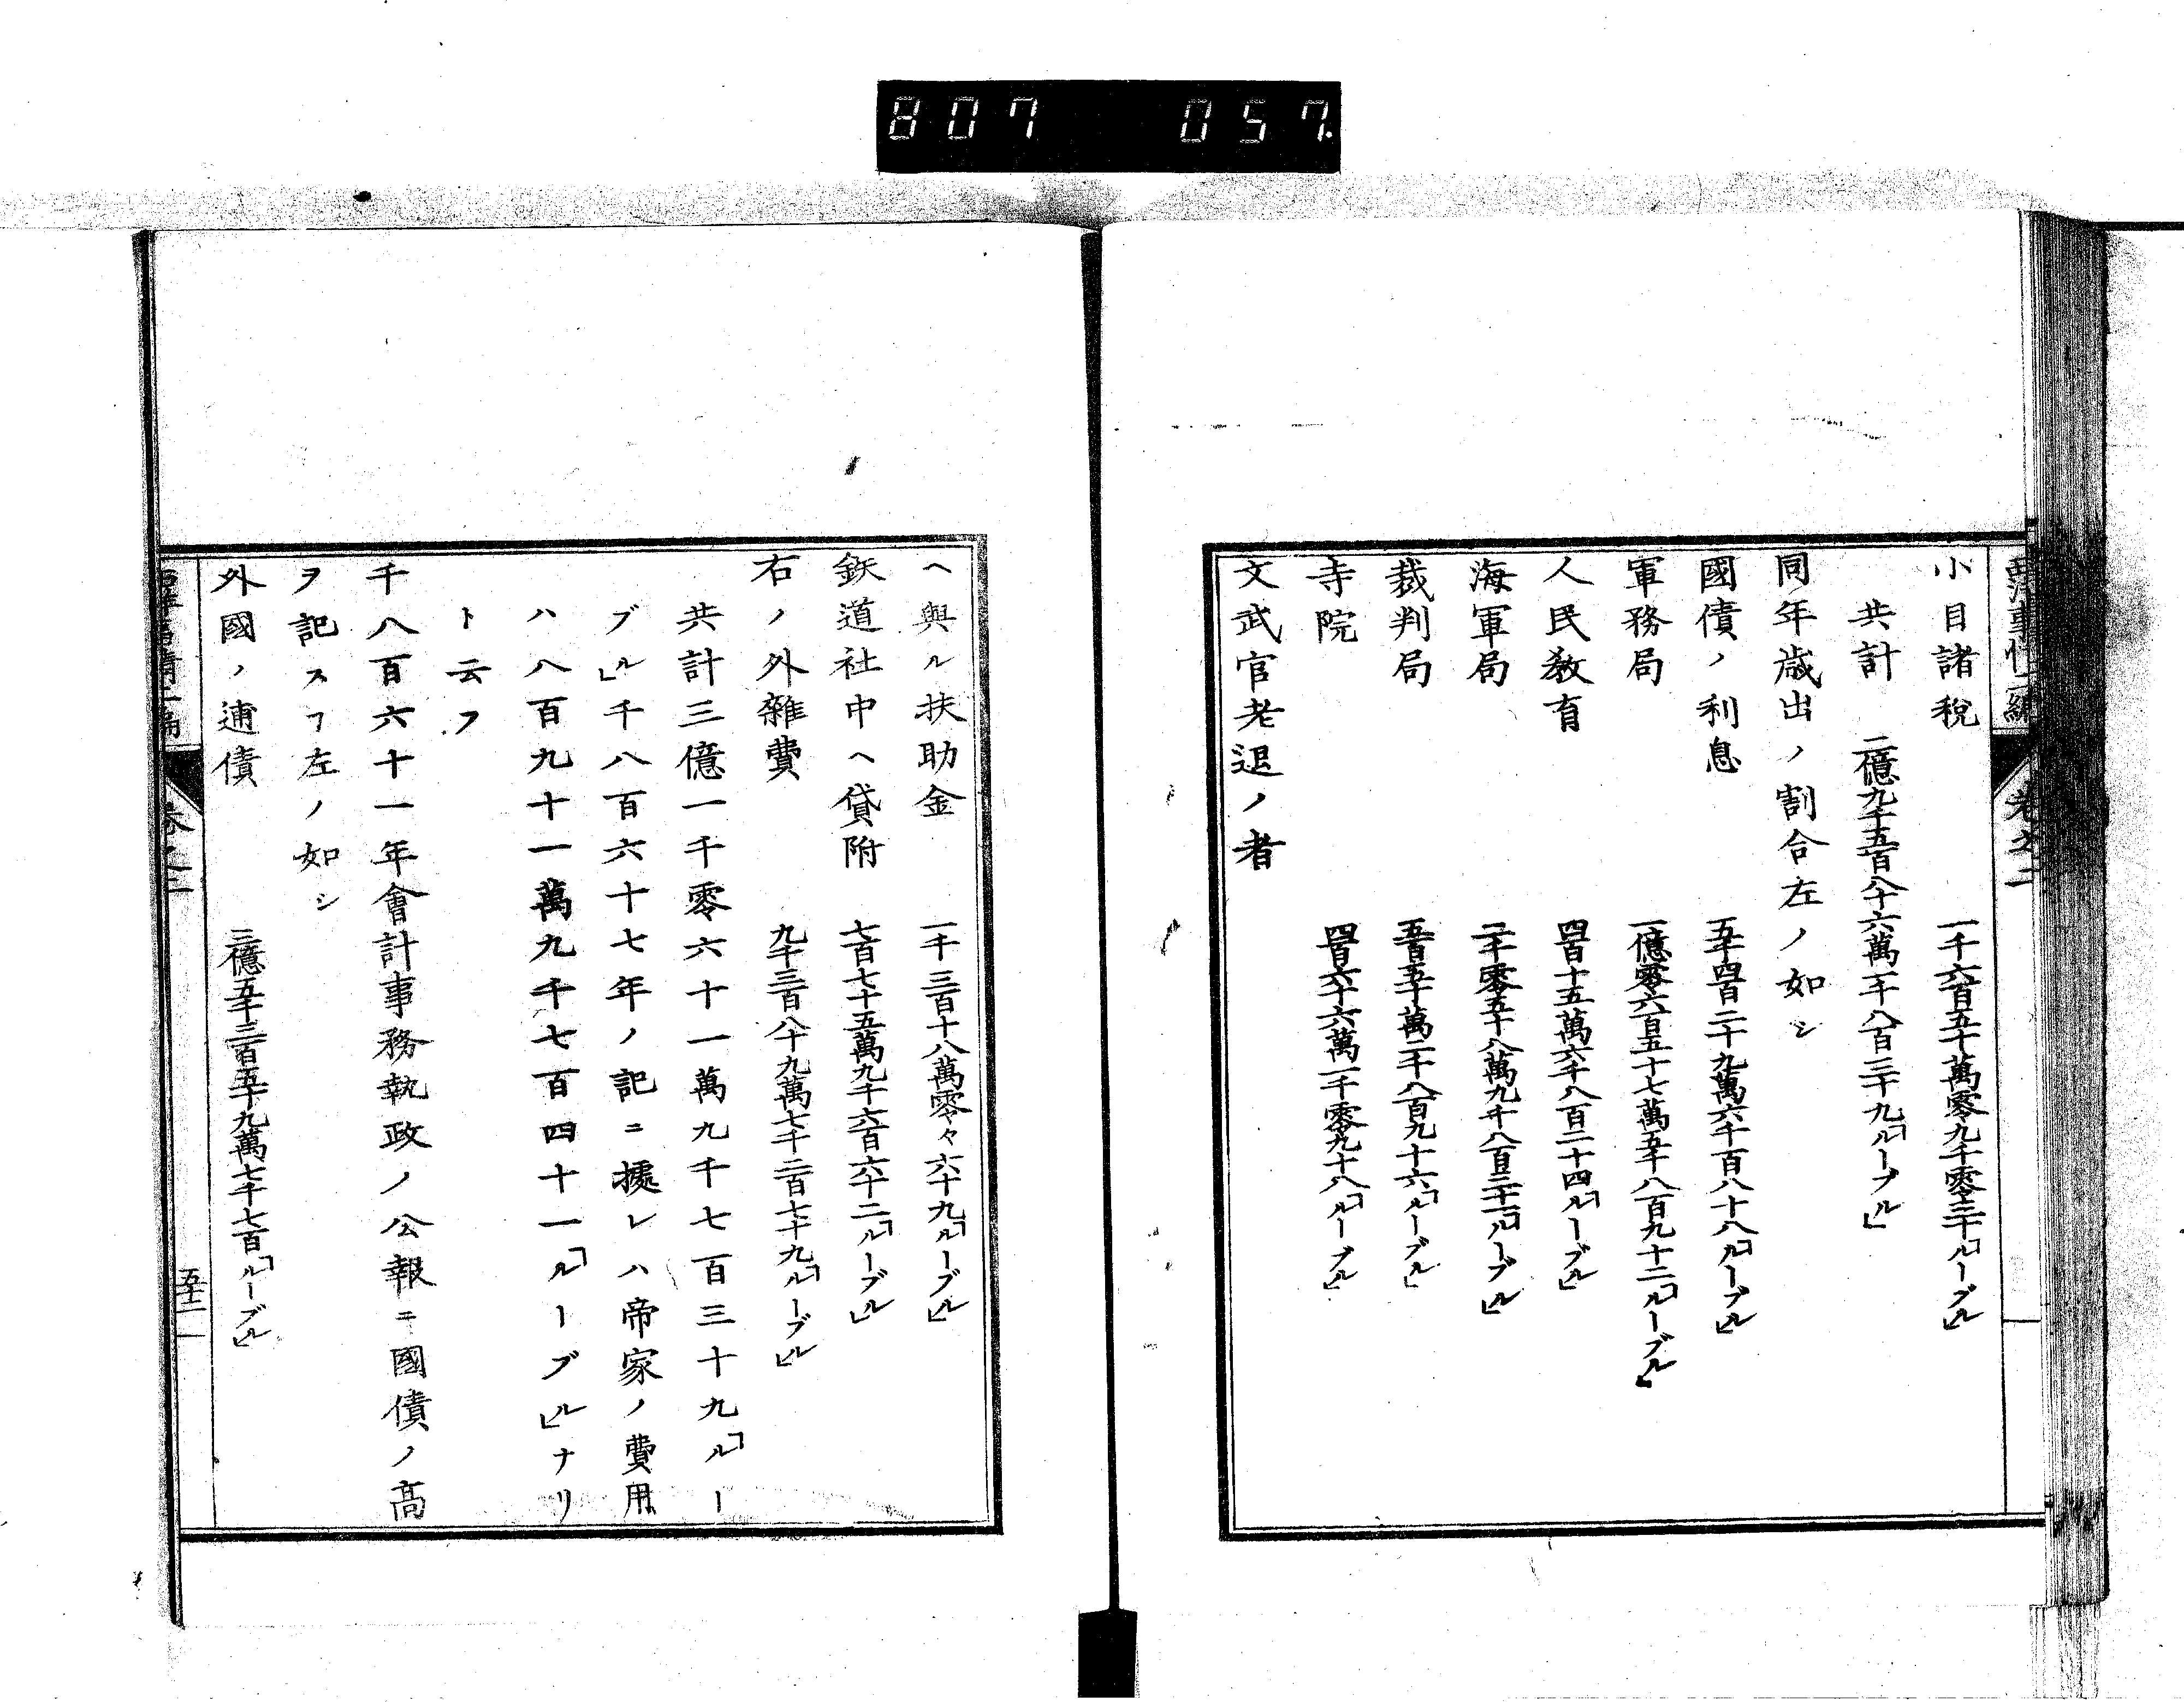 807 057.
西洋事情二編 卷之二
小目諸税 一千六百五十萬零九千零三十「ルーブル」
共計 二億九千五百八十六萬一千八百三十九「ルーブル」
同年歳出ノ割合左ノ如シ
國債ノ利息 五千四百二十九萬六千百八十八「ルーブル」
軍務局 一億零六百五十七萬五千八百九十二「ルーブル」
人民教育 四百十五萬六千八百二十四「ルーブル」
海軍局 二千零五十八萬九千八百三十一「ルーブル」
裁判局 五百五十萬二千八百九十六「ルーブル」
寺院 四百六十六萬一千零九十八「ルーブル」
文武官老退ノ者
ヘ與ル扶助金 一千三百十八萬零々六十九「ルーブル」
鉄道社中ヘ貸附 七百七十五萬九千六百六十二「ルーブル」
右ノ外雜費 九千三百八十九萬七千二百七十九「ルーブル」
共計三億一千零六十一萬九千七百三十九「ルー
ブル」千八百六十七年ノ記ニ據レハ帝家ノ費用
ハ八百九十一萬九千七百四十一「ルーブル」ナリ
ト云フ
千八百六十一年會計事務執政ノ公報ニ國債ノ高
ヲ記スヿ左ノ如シ
外國ノ逋債 二億五千三百五十九萬七千七百「ルーブル」
五十二